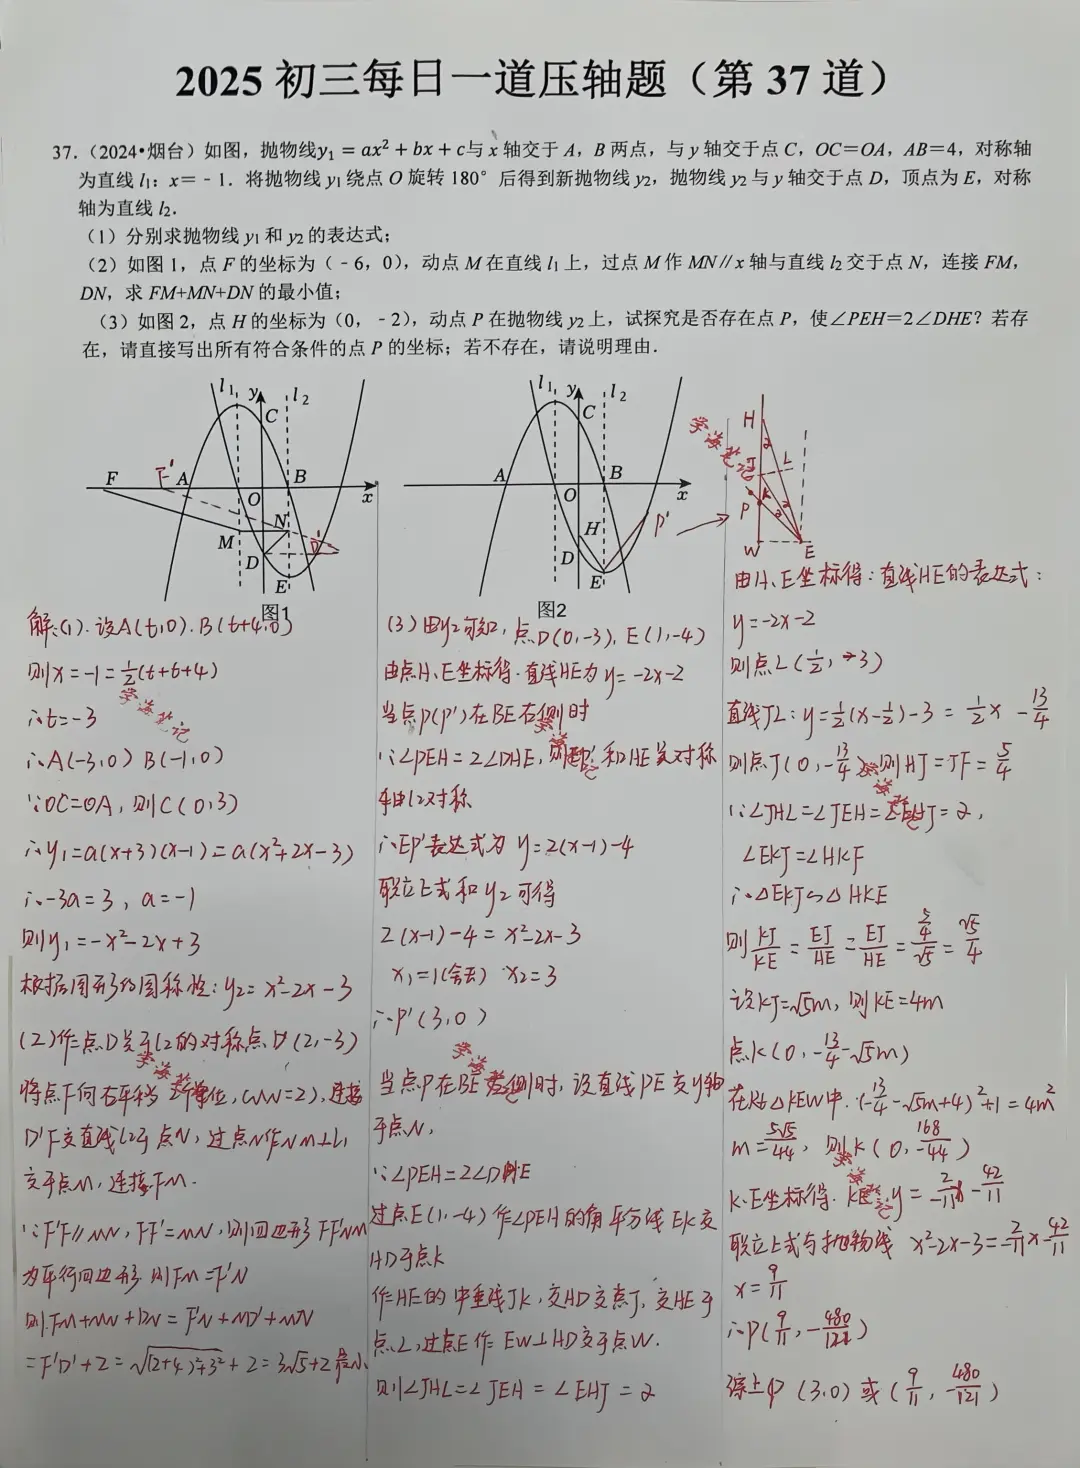 2025 初三每日一道压轴题（第 37 道）
37.（2024•烟台）如图，抛物线y₁ = ax² + bx + c与 x 轴交于 A，B 两点，与 y 轴交于点 C，OC＝OA，AB＝4，对称轴
为直线 l₁：x＝﹣1．将抛物线 y₁ 绕点 O 旋转 180° 后得到新抛物线 y₂，抛物线 y₂ 与 y 轴交于点 D，顶点为 E，对称
轴为直线 l₂．
（1）分别求抛物线 y₁ 和 y₂ 的表达式；
（2）如图 1，点 F 的坐标为（﹣6，0），动点 M 在直线 l₁ 上，过点 M 作 MN∥x 轴与直线 l₂ 交于点 N，连接 FM，
DN，求 FM+MN+DN 的最小值；
（3）如图 2，点 H 的坐标为（0，﹣2），动点 P 在抛物线 y₂ 上，试探究是否存在点 P，使∠PEH＝2∠DHE？若存
在，请直接写出所有符合条件的点 P 的坐标；若不存在，请说明理由．
l₁ y l₂
C
F F' A B
O x
N
M
D D'
E
图1
l₁ y l₂
C
A B
O x
H P'
D
E
图2
学海笔记
H
2 L
J
K 2
P 2
W E
解:(1). 设A(t,0). B(t+4,0)
则x=-1=½(t+t+4)
∴t=-3
学海笔记
∴A(-3,0) B(-1,0)
∵OC=OA, 则C(0,3)
∴y₁=a(x+3)(x-1)=a(x²+2x-3)
∴-3a=3, a=-1
则y₁=-x²-2x+3
根据图形的图称性: y₂=x²-2x-3
(2)作点D关于l2的对称点D'(2,-3)
学海笔记
将点F向右平移2个单位,(MN=2),连接
D'F'交直线l2于点N, 过点N作NM⊥l₁
交于点M, 连接FM.
∵F'F∥MN, FF'=MN, 则四边形FF'NM
为平行四边形. 则FM=F'N
则FM+MN+DN=F'N+ND'+MN
=F'D'+2=√(2+4)²+3²+2=3√5+2最小
(3) 由y₂可知, 点D(0,-3), E(1,-4)
由点H、E坐标得. 直线HE为 y=-2x-2
当点P(P')在BE右侧时
∵∠PEH=2∠DHE, 则EP'和HE关对称
轴l2对称
学海笔记
∴EP'表达式为 y=2(x-1)-4
联立上式和y₂可得
2(x-1)-4=x²-2x-3
x₁=1(舍去) x₂=3
∴P'(3,0)
学海笔记
当点P在BE左侧时, 设直线PE交y轴
于点N,
∵∠PEH=2∠DHE
过点E(1,-4)作∠PEH的角平分线EK交
HD于点K
作HE的中垂线JK, 交HD交点J, 交HE于
点L, 过点E作EW⊥HD交于点W.
则∠JHL=∠JEH=∠EHJ=2
由H、E坐标得: 直线HE的表达式:
y=-2x-2
则点L(½, -3)
直线JL: y=½(x-½)-3=½x-13/4
则点J(0,-13/4), 则HJ=JF=5/4
学海笔记
∵∠JHL=∠JEH=∠EHJ=2,
∠EKJ=∠HKF
∴△EKJ∽△HKE
则KJ/KE=EJ/HE=EJ/HE=(5/4)/√5=√5/4
设KJ=√5m, 则KE=4m
点K(0,-13/4-√5m)
在Rt△KEW中. (-13/4-√5m+4)²+1=4m²
m=5√5/44, 则K(0,-168/44)
学海笔记
K、E坐标得. KE: y=-2/11x-42/11
联立上式与抛物线 x²-2x-3=-2/11x-42/11
x=9/11
∴P(9/11,-480/121)
综上P (3,0) 或 (9/11,-480/121)